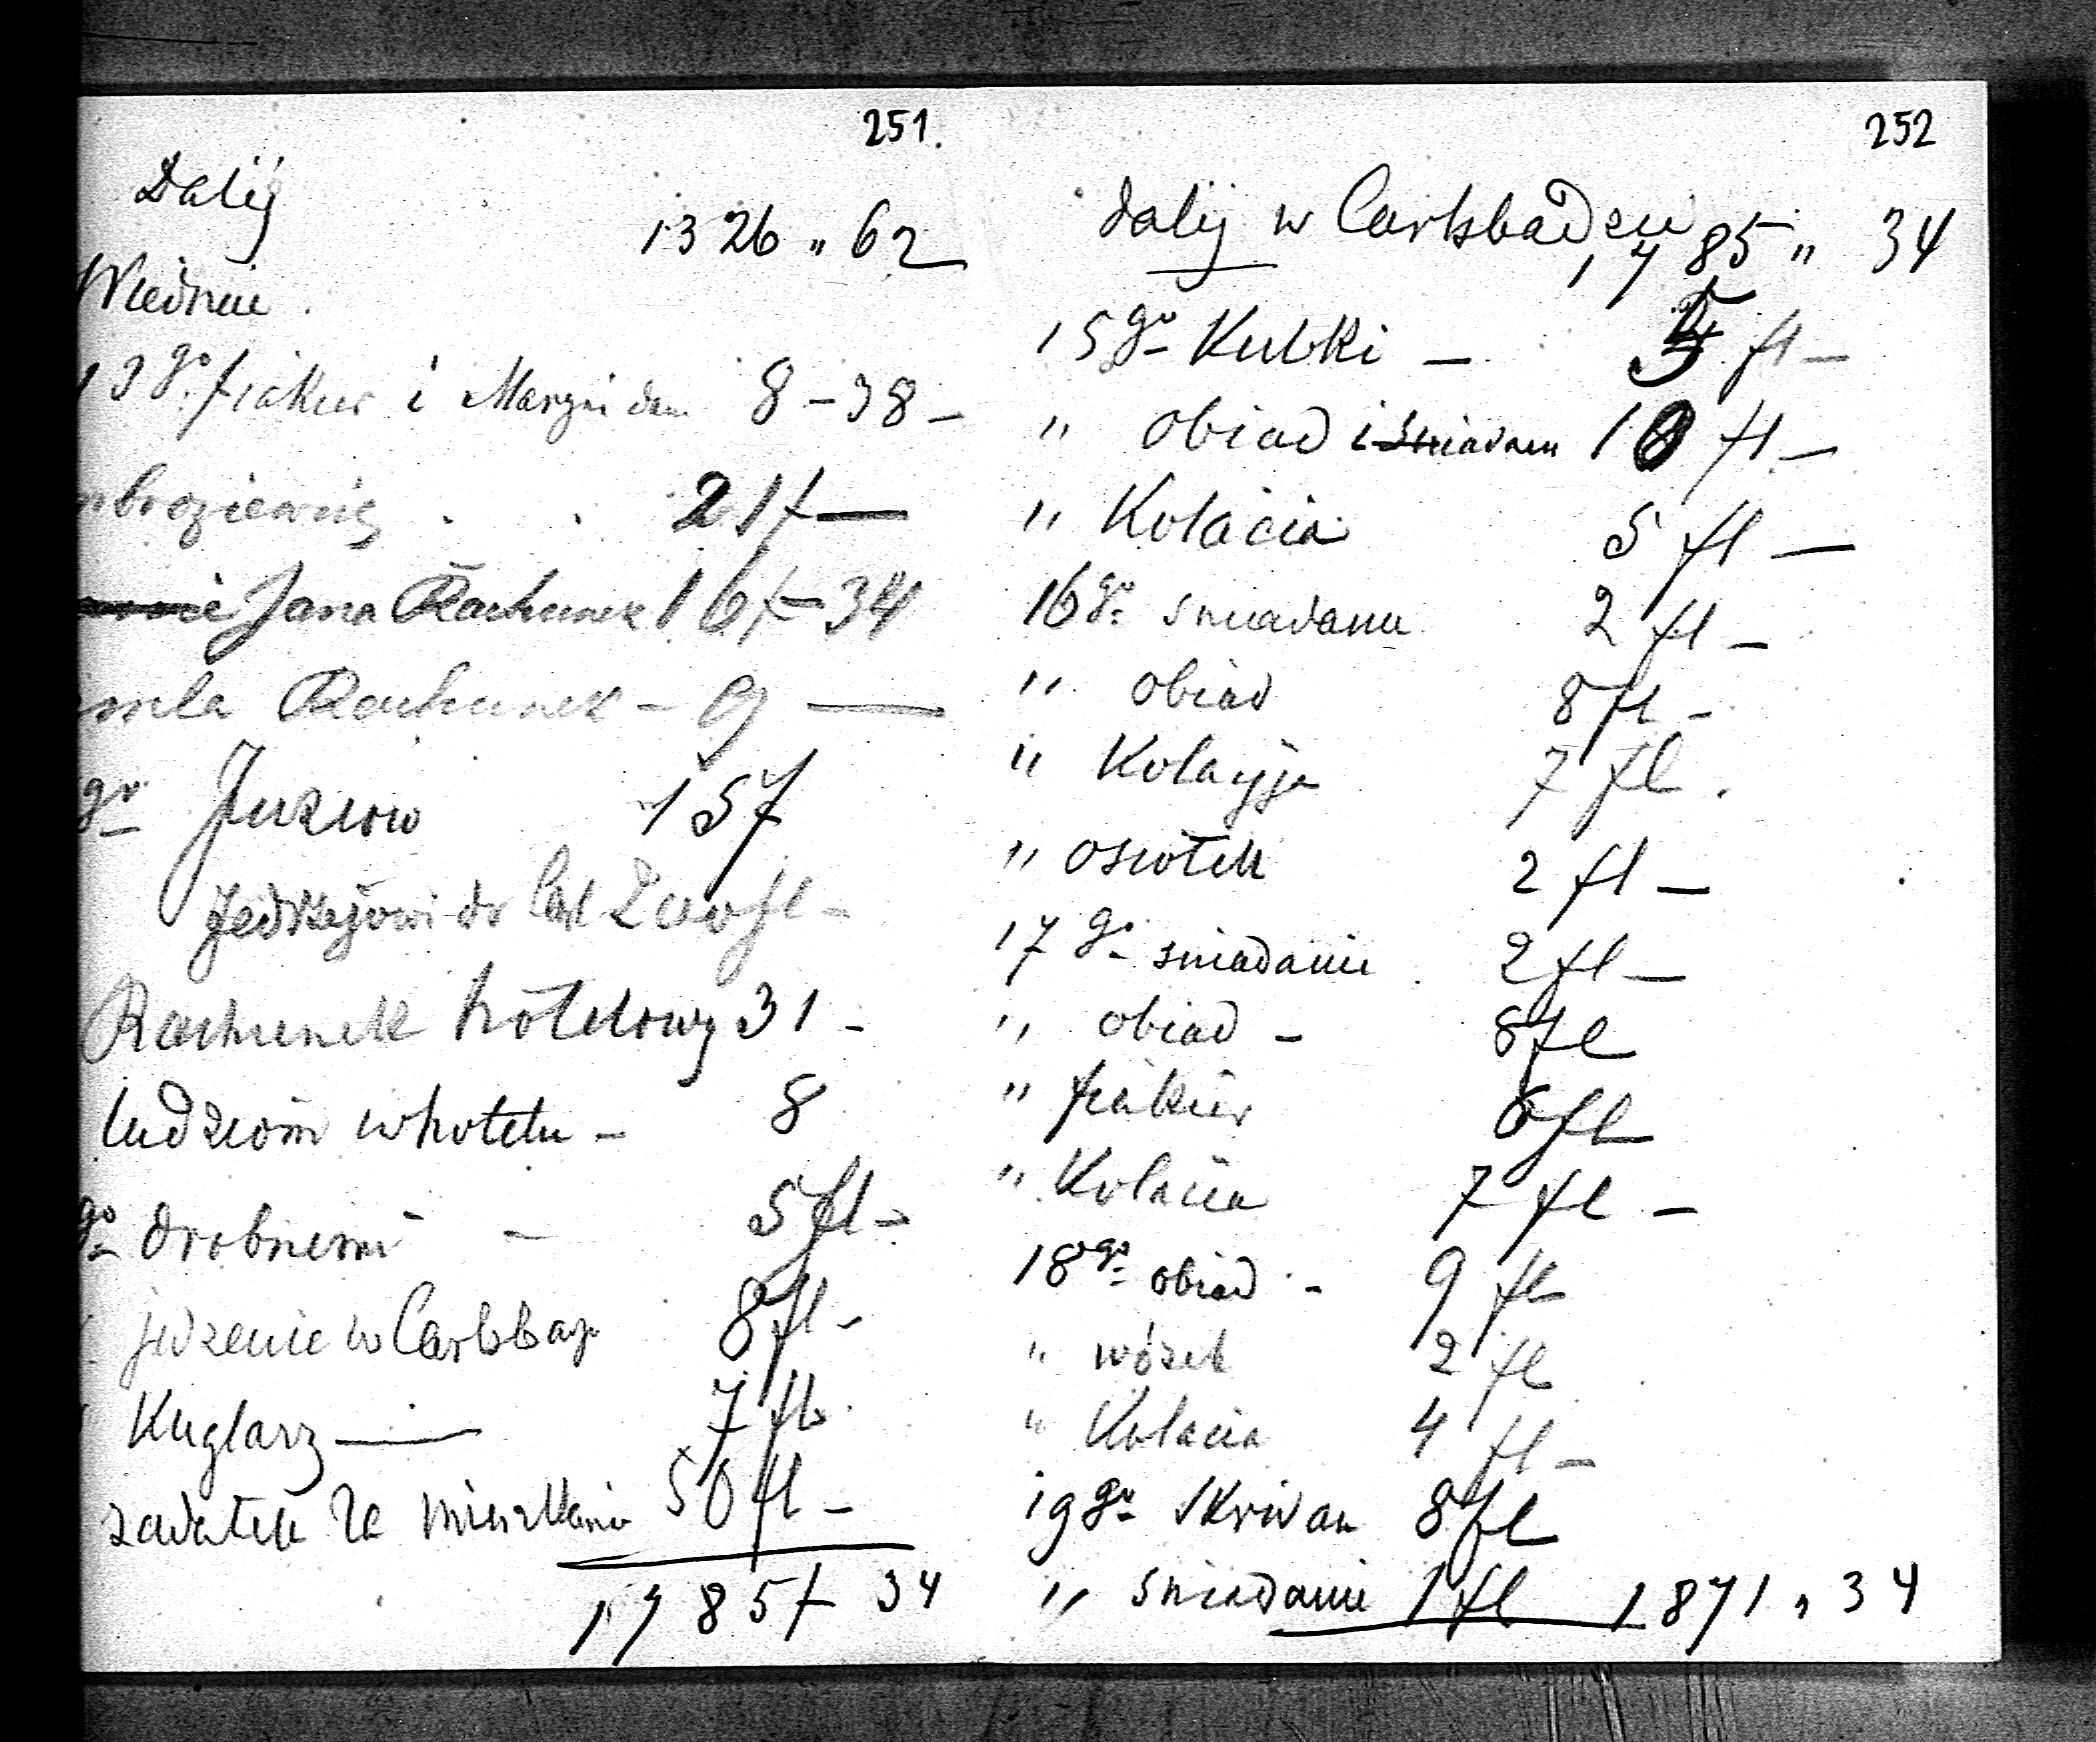 251.
Dalij
1326 „ 62
Wiednie.
13go fiakier i 8 – 38 –
mbroziewicz . . 21f —
Jana Rachunek 16f – 34
Rachunek – 9 —
go 15f
Jedrzejowi do
Rachunek hôtelowy 31 –
ludziom w hotelu – 8
go drobnemi – 5 fl –
jedzenie w 8 fl –
Kuglarz — 7 fl.
zadatek za mieszkanie 50 fl –
1785f 34
252
dalij w Carlsbadzie
1785 „ 34
15go Kubki – 5 fl –
„ obiad i śniadanie 10 fl –
„ Kolacia 5 fl —
16go sniadanie 2 fl –
„ obiad 8 fl –
„ Kolacyja 7 fl .
„ osiołek 2 fl –
17go sniadanie 2 fl –
„ obiad – 8 fl
„ fiakier 6 fl
„ Kolacia 7 fl –
18go obiad – 9 fl
„ wózek 2 fl
„ Kolacia 4 fl –
19go Skrivan 8 fl
„ sniadanie 1 fl 1871 „ 34